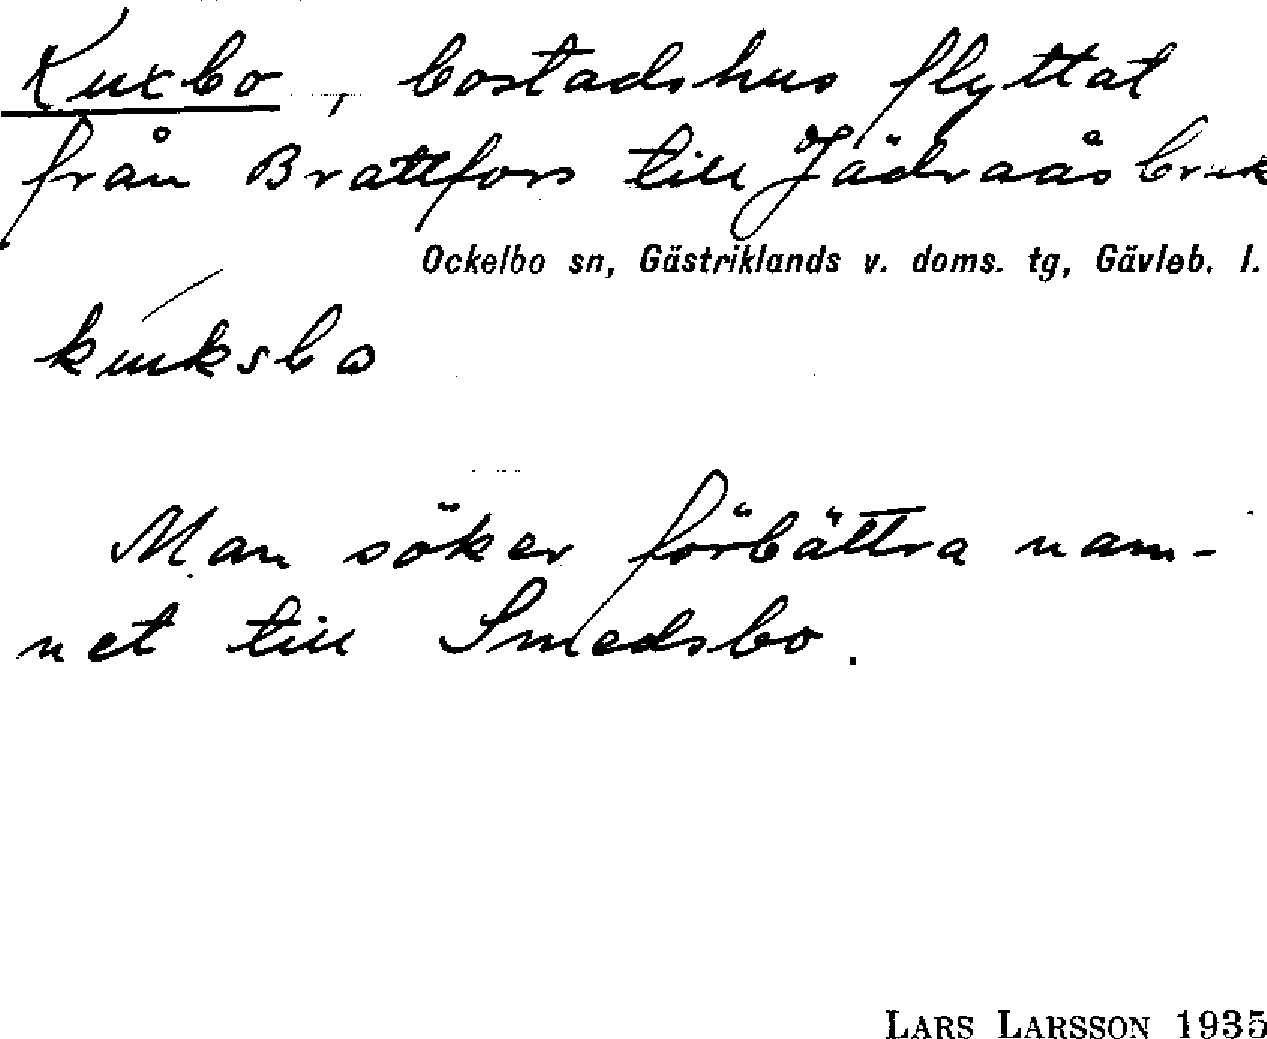 Kuxbo, bostadshus flyttat
från Brattfors till Jädraås bruk
Ockelbo sn, Gästriklands v. doms. tg, Gävleb. l.
Man söker förbättra nam-
net till Smedsbo.
LARS LARSSON 1935